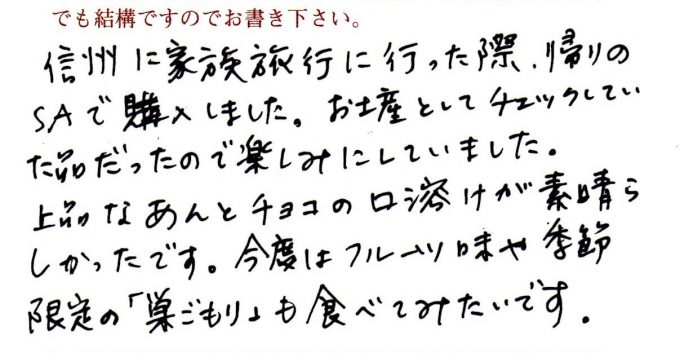 でも結構ですのでお書き下さい。
信州に家族旅行に行った際、帰りの
SAで購入しました。お土産としてチェックしてい
た品だったので楽しみにしていました。
上品なあんとチョコの口溶けが素晴ら
しかったです。今度はフルーツ味や季節
限定の「巣ごもり」も食べてみたいです。